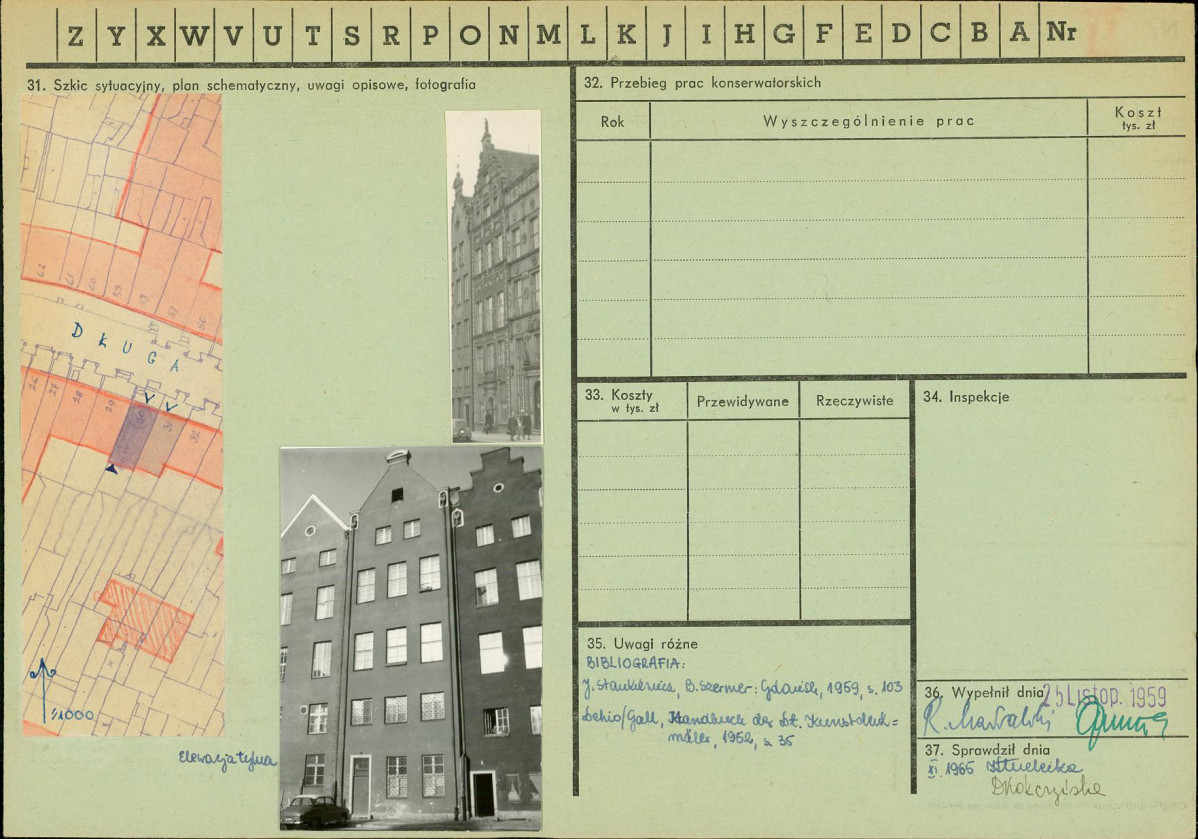 Z Y X W V U T S R P O N M L K J I H G F E D C B A Nr
31. Szkic sytuacyjny, plan schematyczny, uwagi opisowe, fotografia
62 61 60 59 58 57 56
DŁUGA
26 27 28 29 30 31 32
1:1000
Elewacja tylna
32. Przebieg prac konserwatorskich
Rok Wyszczególnienie prac Koszt
tys. zł
33. Koszty
w tys. zł
Przewidywane Rzeczywiste
34. Inspekcje
35. Uwagi różne
BIBLIOGRAFIA:
J. Stankiewicz, B. Szermer: Gdańsk, 1959, s. 103
Dehio/Gall, Handbuch der Dt. Kunstdenk=
mäler, 1952, s. 35
36. Wypełnił dnia 25 Listop. 1959
37. Sprawdził dnia
XI. 1965